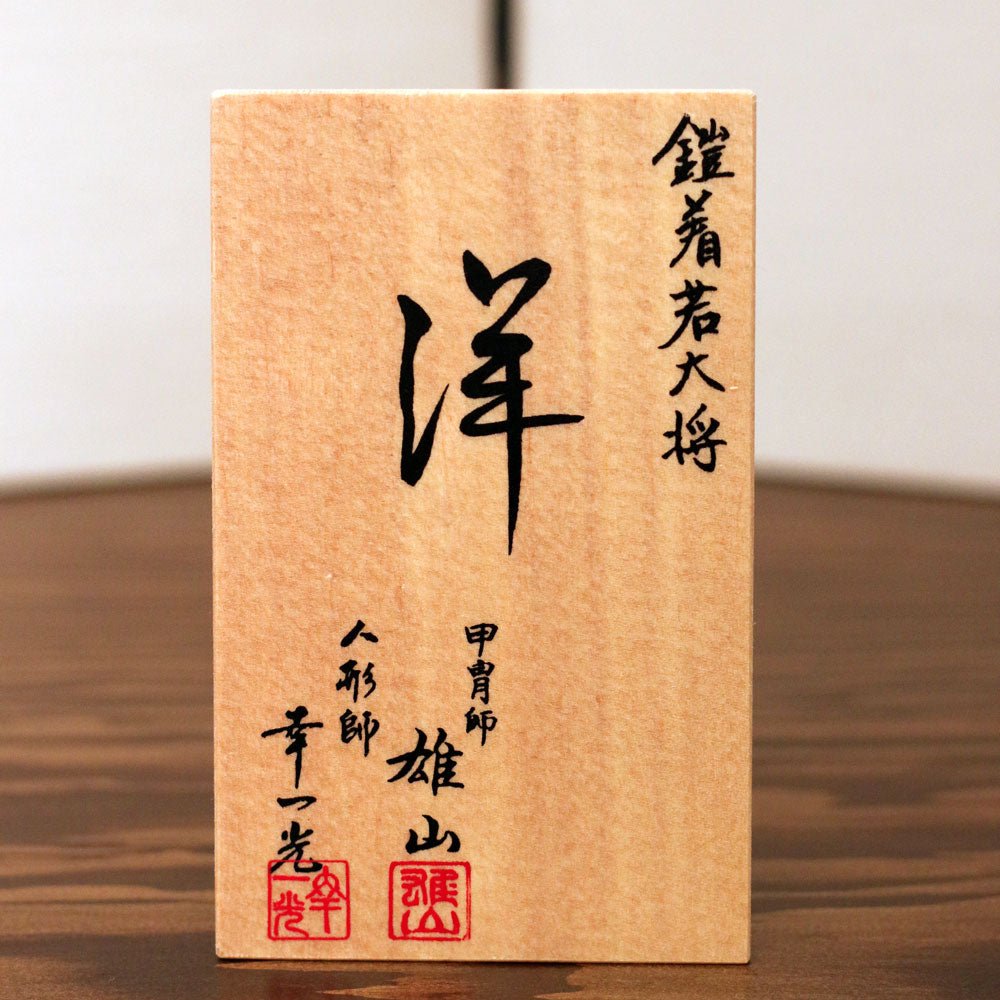 鎧着若大将
洋
甲冑師
雄山
人形師
幸一光
雄山
幸一光